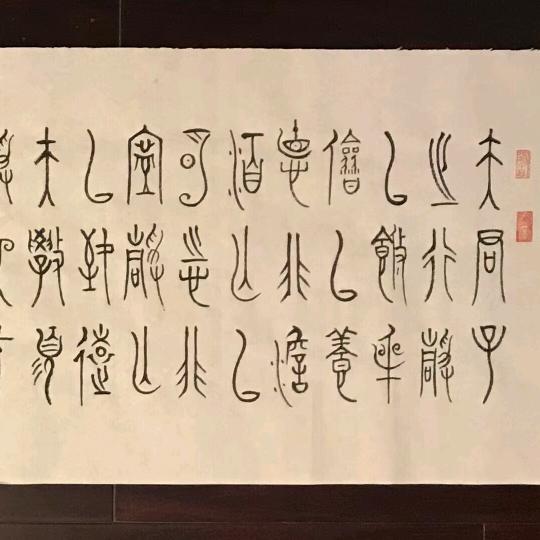 夫君子
之行靜
以修身
儉以養
悳非澹
洦亡以
明志非
寍靜亡
以致遠
夫學須